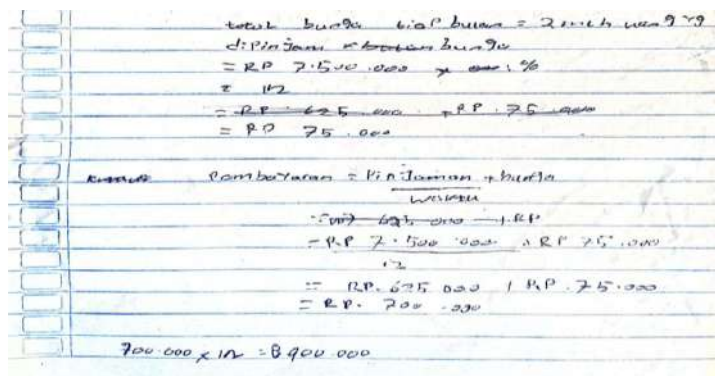 total bunga tiap bulan = jumlah uang yg
dipinjam × bunga
= RP 7.500.000 × 1 %
= 12
= RP. 625.000 + RP. 75.000
= RP 75.000
Pembayaran = Pinjaman + bunga
waktu
625.000 + RP
= RP 7.500.000 + RP 75.000
12
= RP. 625 000 + RP. 75.000
= RP. 700.000
700.000 × 12 = 8 400.000